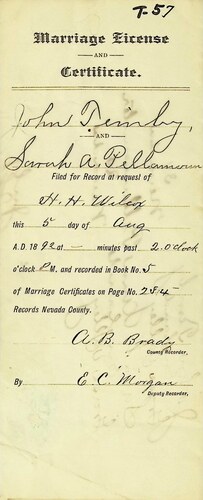 T-57
Marriage License
AND
Certificate.
John Timby,
AND
Sarah A.
Filed for Record at request of
H. H. Wilcox
this 5 day of Aug
A.D. 1892 at — minutes past 2. O'clock
o'clock P.M. and recorded in Book No. 5
of Marriage Certificates on Page No. 254
Records Nevada County.
A. B. Brady
County Recorder,
By E. C. Morgan
Deputy Recorder,